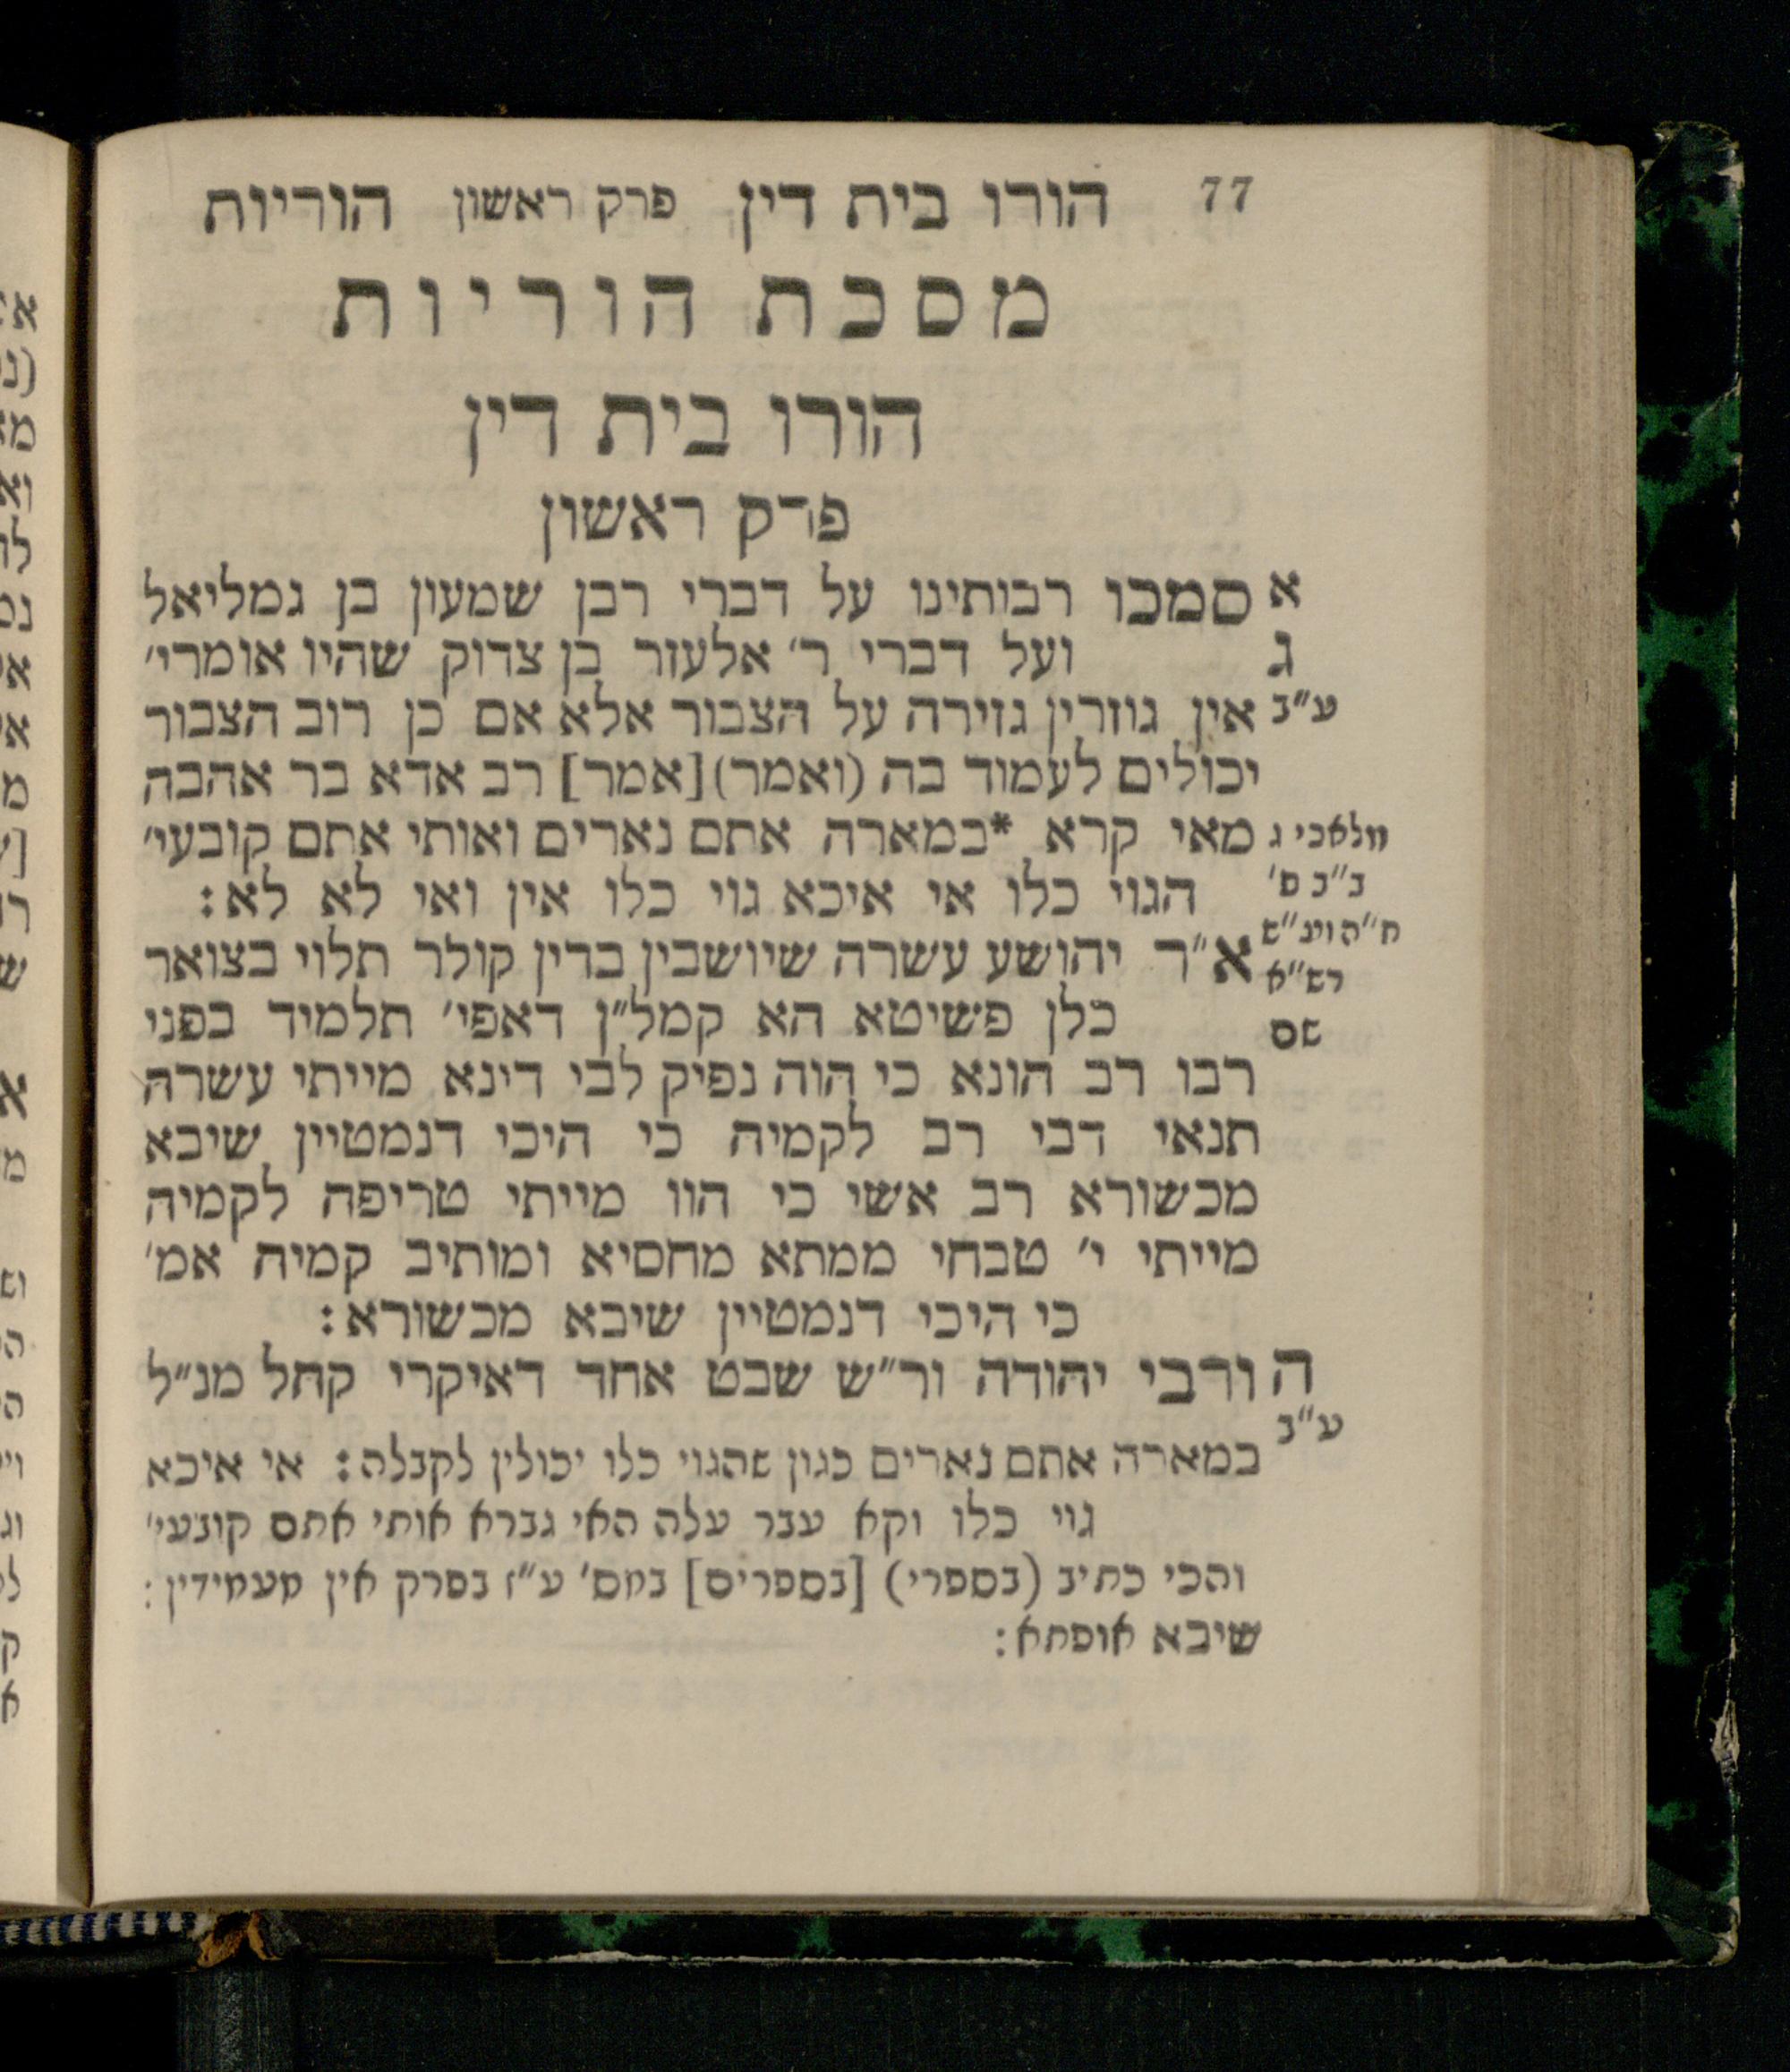 77 הורו בית דין פרק ראשון הוריות
מסכת הוריות
הורו בית דין
פרק ראשון
א סמכו רבותינו על דברי רבן שמעון בן גמליאל
ג ועל דברי ר׳ אלעזר בן צדוק שהיו אומרי׳
ע״ב אין גוזרין גזירה על הצבור אלא אם כן רוב הצבור
יכולים לעמוד בה (ואמר) [אמר] רב אדא בר אהבה
מלאכי ג מאי קרא *במארה אתם נארים ואותי אתם קובעי׳
ב״ב ס׳ הגוי כלו אי איכא גוי כלו אין ואי לא לא:
א״ר יהושע עשרה שיושבין בדין קולר תלוי בצואר
רש״א
שם כלן פשיטא הא קמל״ן דאפי׳ תלמיד בפני
רבו רב הונא כי הוה נפיק לבי דינא מייתי עשרה
תנאי דבי רב לקמיה כי היכי דנמטיין שיבא
מכשורא רב אשי כי הוו מייתי טריפה לקמיה
מייתי י׳ טבחי ממתא מחסיא ומותיב קמיה אמ׳
כי היכי דנמטיין שיבא מכשורא:
ה ורבי יהודה ור״ש שבט אחד דאיקרי קהל מנ״ל
ע״ב
במארה אתם נארים כגון שהגוי כלו יכולין לקבלה: אי איכא
גוי כלו וקא עבר עלה האי גברא אותי אתם קובעי׳
והכי כתיב (בספרי) [בספרים] במס׳ ע״ז בפרק אין מעמידין:
שיבא אופתא: